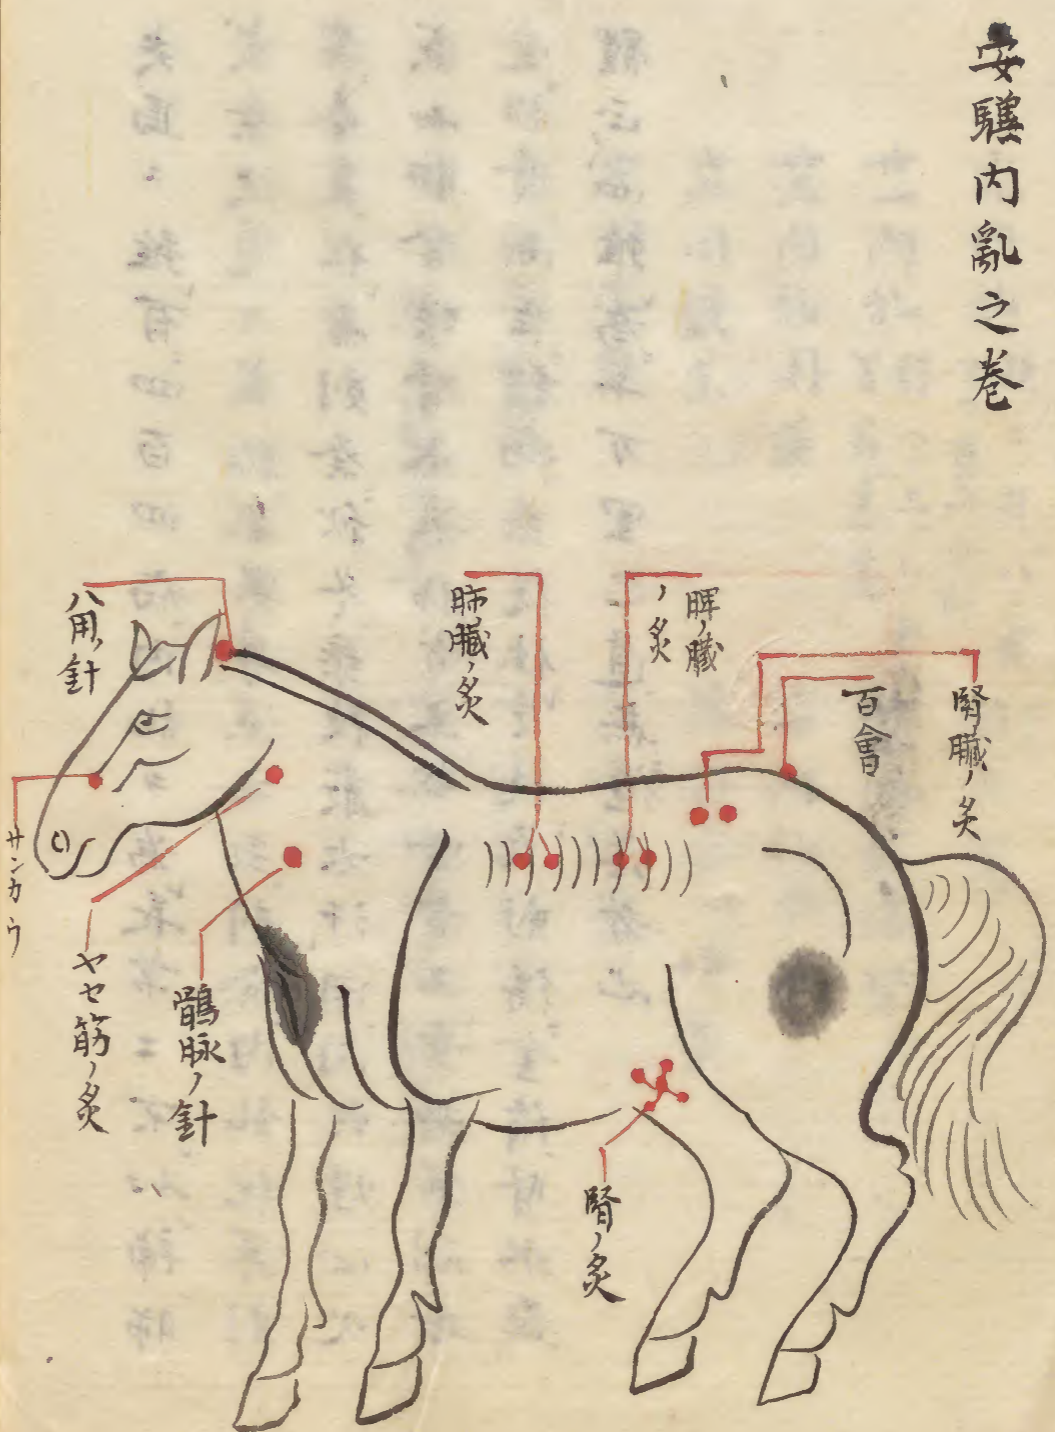 安驥内亂之巻
腎臓ノ炙
百會
脾ノ臓
ノ炙
肺臓ノ炙
八用ノ針
サンカウ
ヤセ筋ノ炙
鶻脉ノ針
腎ノ炙